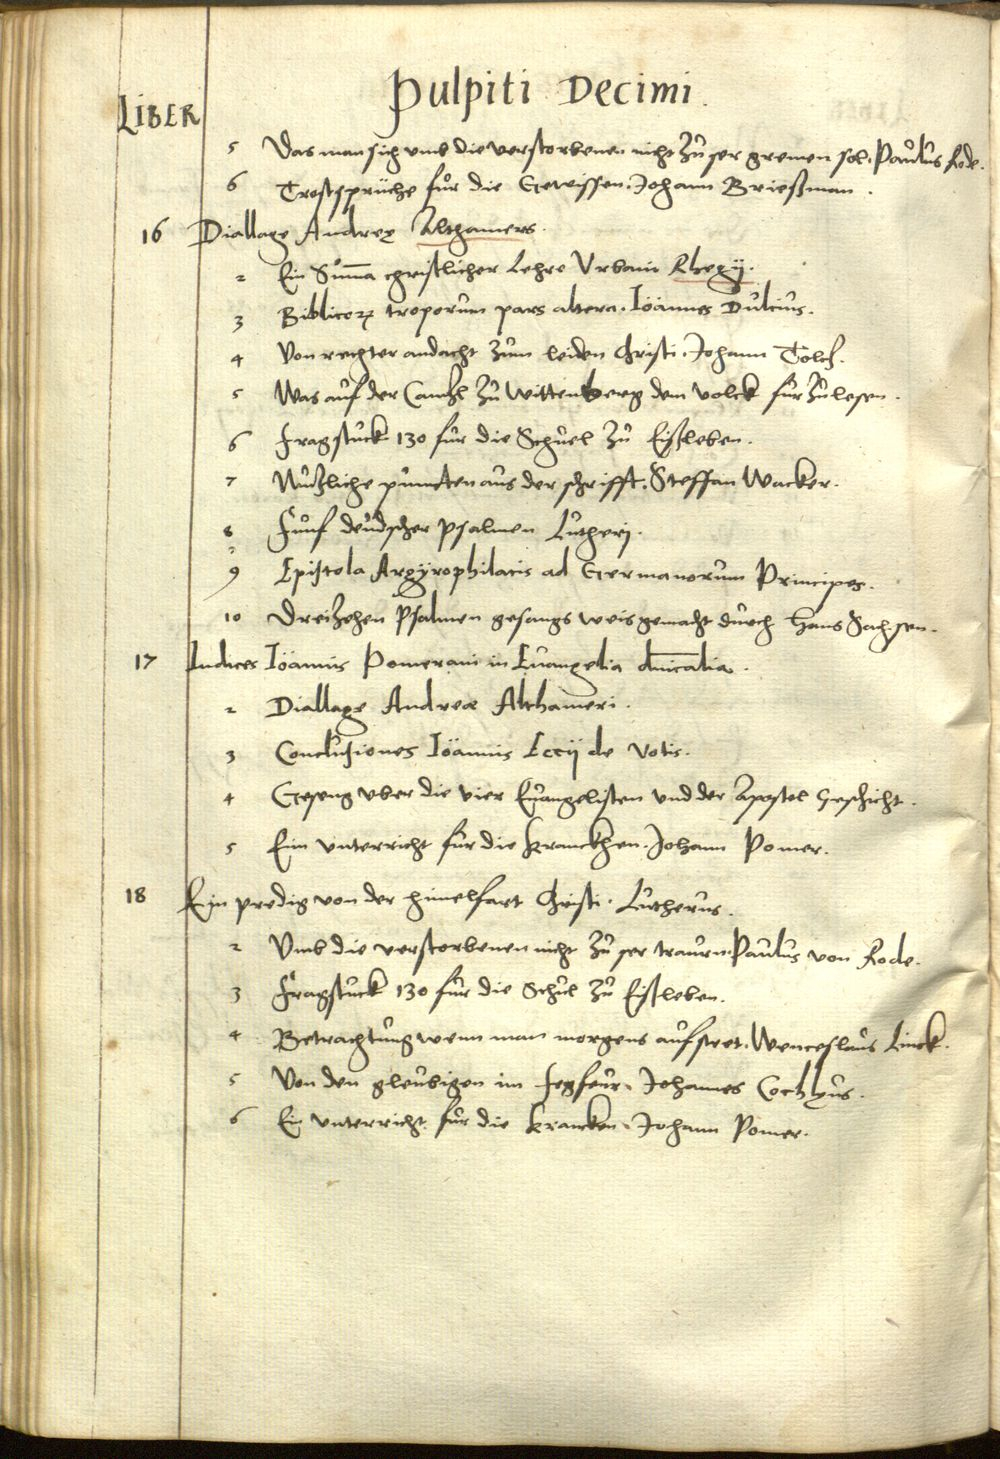 Pulpiti Decimi.
LIBER
5 Das man sich umb die verstorbenen nicht zů ser gremen sol. Paulus Rode.
6 Trostsprüche für die Gewissen. Johann Brießman.
16 Diallage Andreę Althamers.
2 Ein Sum̄a christlicher Lehre Urbani Rhegij.
3 Biblicoꝝ troporum pars altera. Ioannes Dulcius.
4 Von rechter andacht zum leiden Christi. Johann Tolch.
5 Was auf der Cantzl zů Wittenberg dem volck für zůlesen.
6 Fragstuck 130 für die Schůel zů Eißleben.
7 Nutzliche puncten aus der schrifft. Steffan Wacker.
8 Fünf deudscher Psalmen Lutherj.
9 Epistola Argyrophilacis ad Germanorum Principes.
10 Dreizehen Psalmen gesangs weis gemacht durch Hans Sachsen.
17 Indices Ioannis Pomerani in Euangelia dn̄icalia.
2 Diallage Andreæ Althameri.
3 Conclusiones Ioannis Eccij de Votis.
4 Geseng uber die vier Euangelisten und der Apostel Geschicht.
5 Ein unterricht für die kranckhen. Johann Pomer.
18 Ein predig von der himelfart Christi. Lutherus.
2 Umb die verstorbenen nicht zů ser traurn. Paulus von Rode.
3 Fragstuck 130 für die Schůl zů Eißleben.
4 Betrachtung wenn man morgens aufstet. Wenceslaus Linck.
5 Von den gleubigen im fegfeur. Johannes Cochlęus.
6 Ein unterricht für die krancken. Johann Pomer.